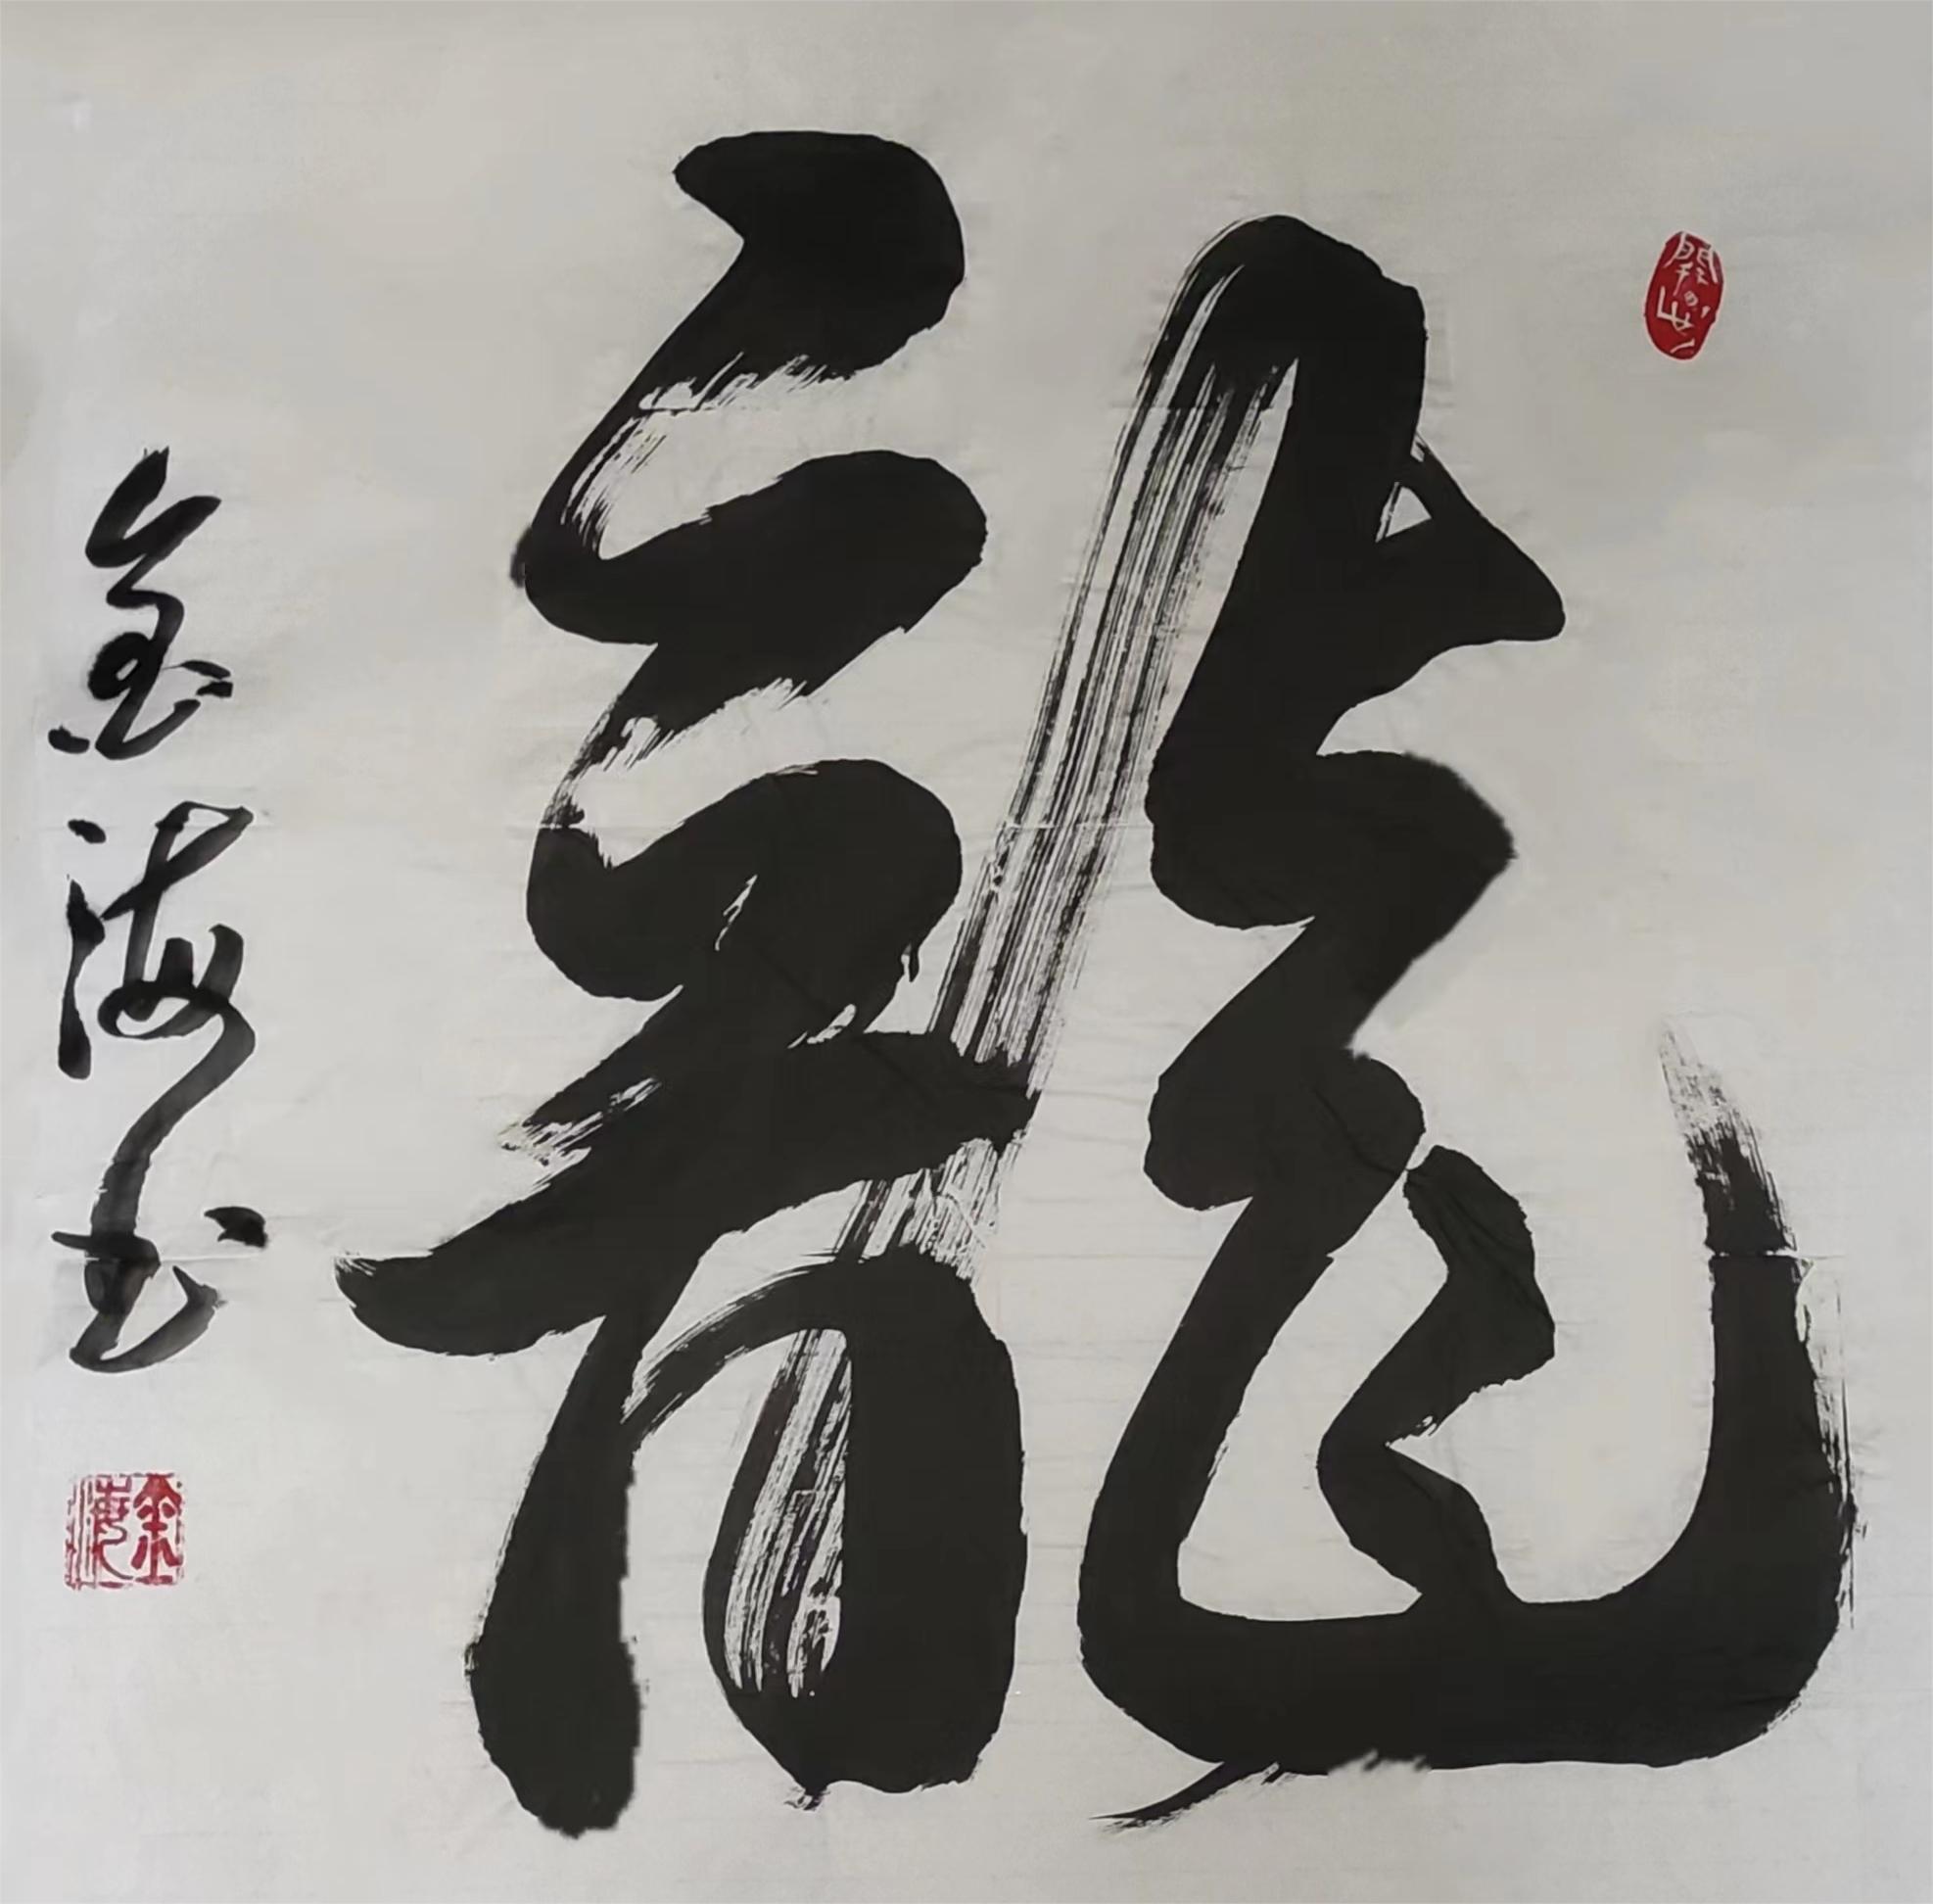 龍
金海书
金海